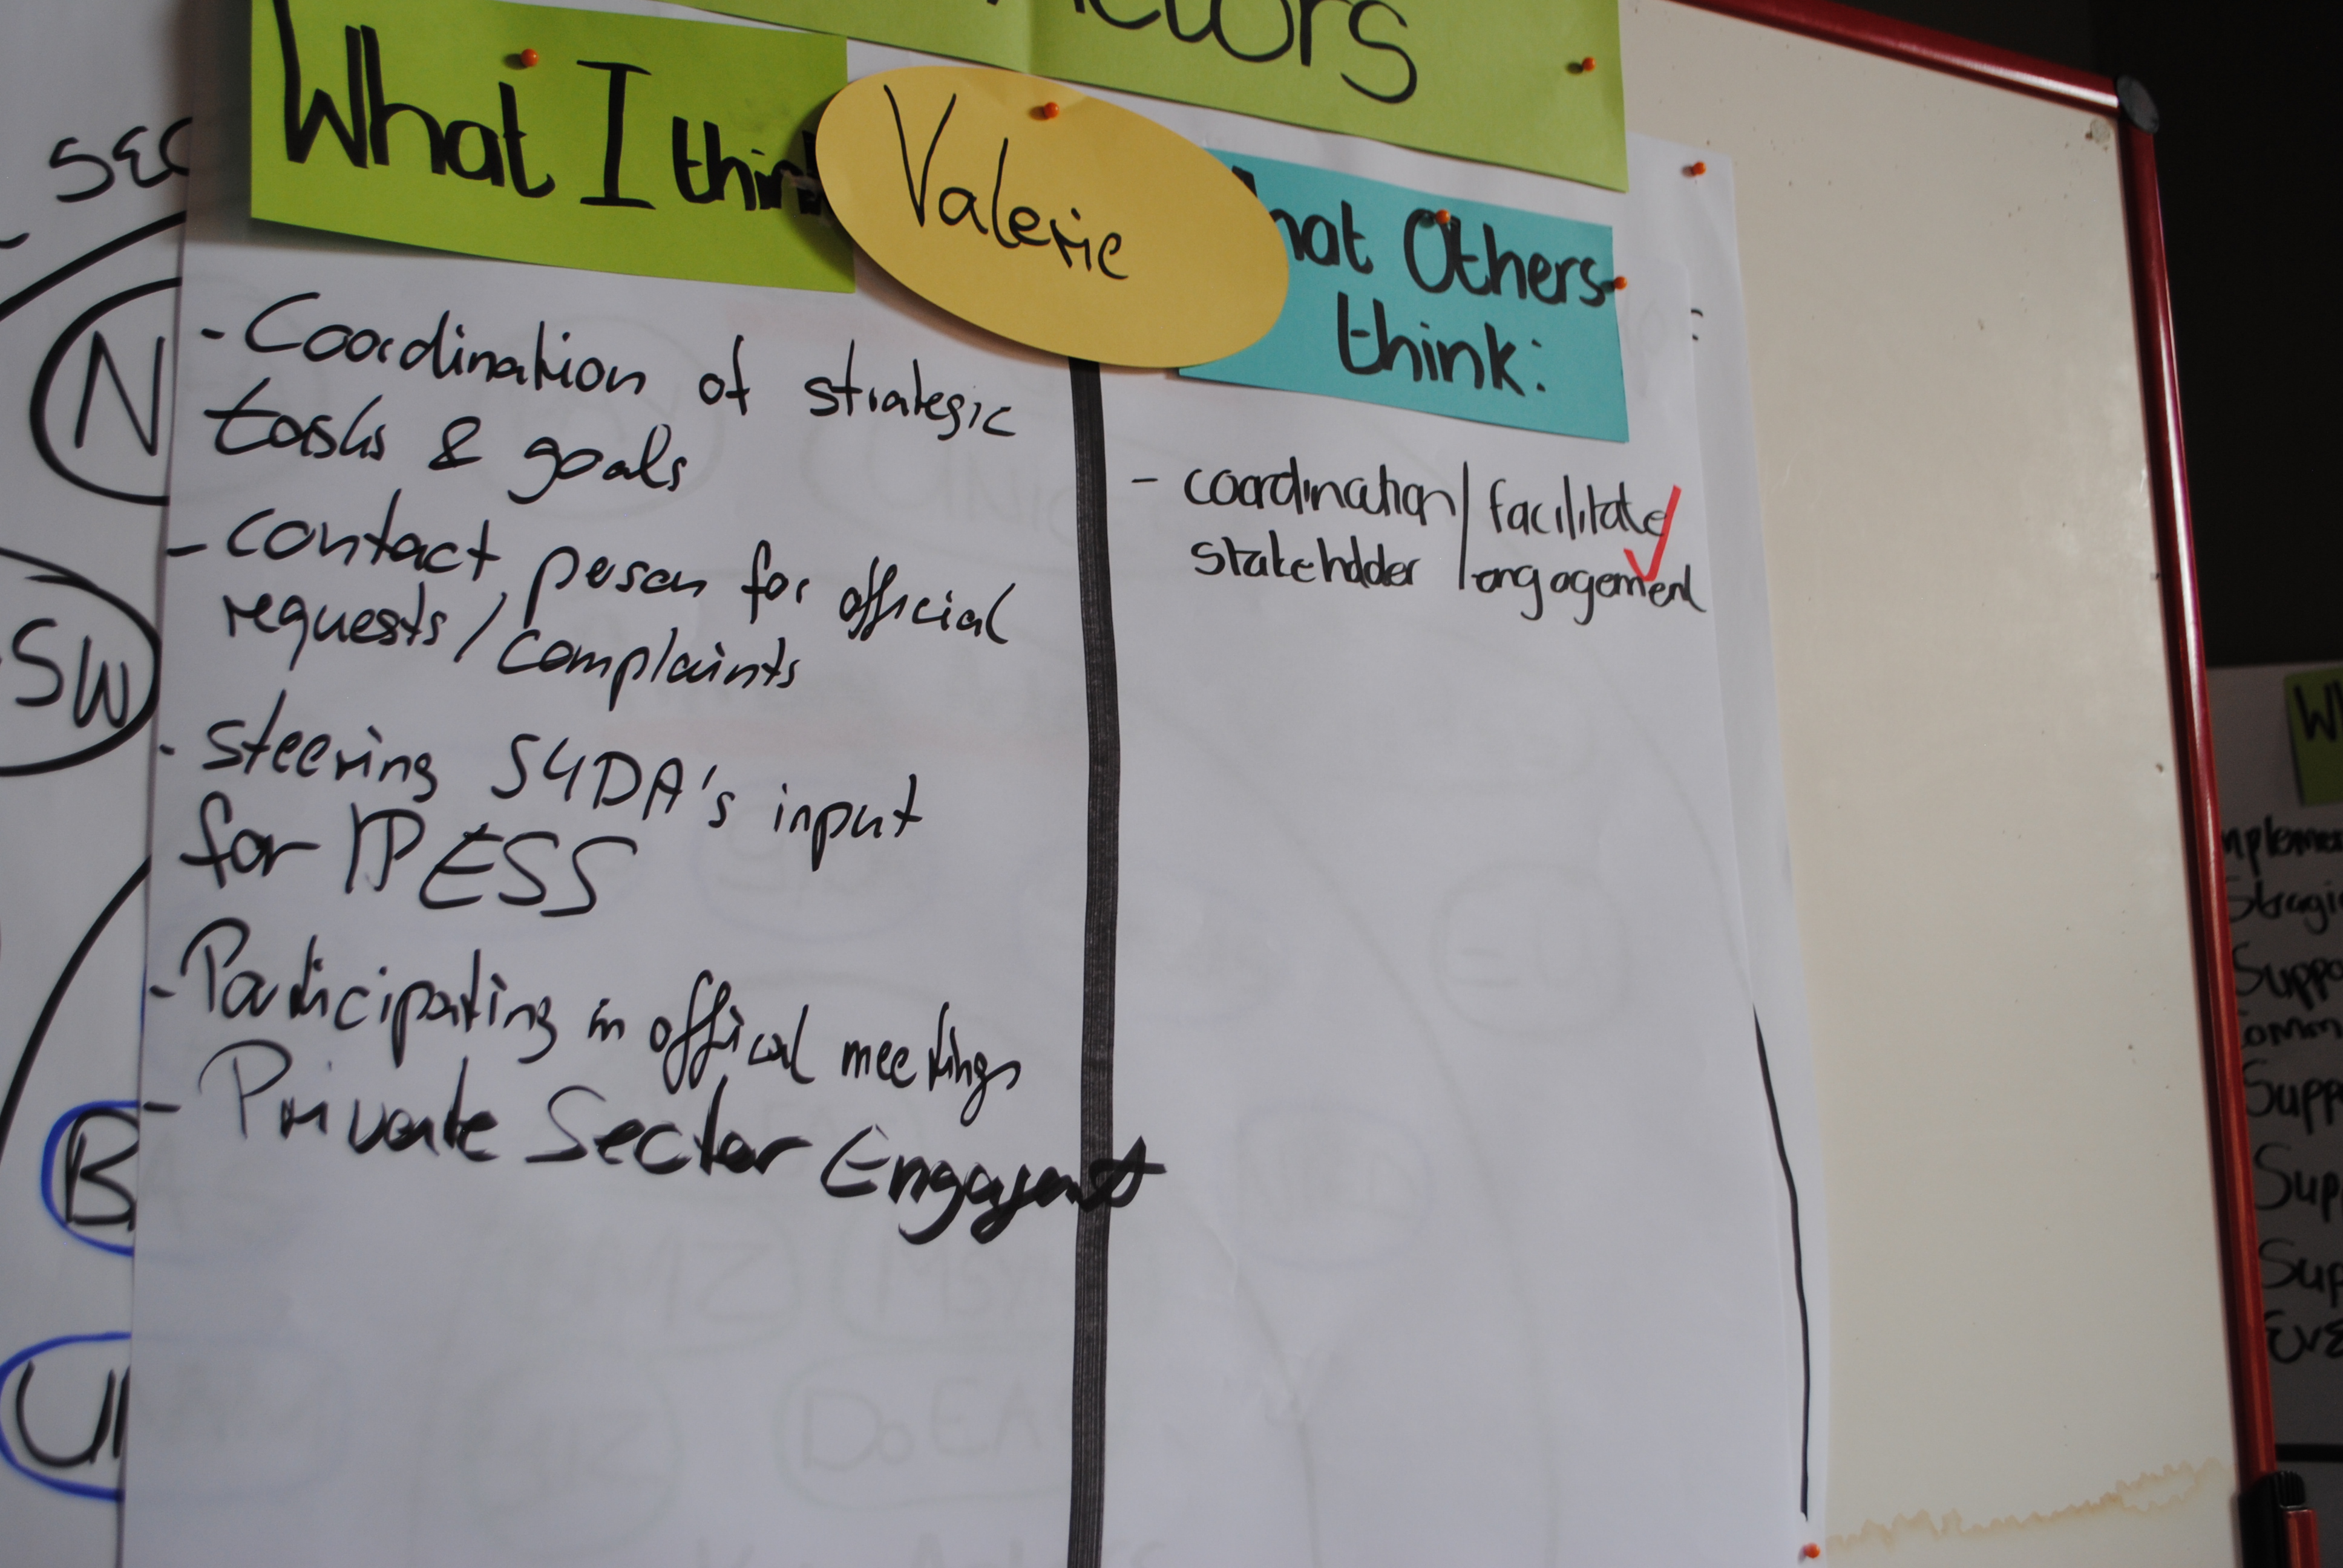 What I think
Valerie
What Others
think:
- Coordination of strategic
tasks & goals
- contact person for official
requests / complaints
- steering S4DA's input
for IPESS
- Participating in offical meetings
- Private Sector Engagement
- coordination / facilitate
stakeholder / engagement
SEC
N
SW
B